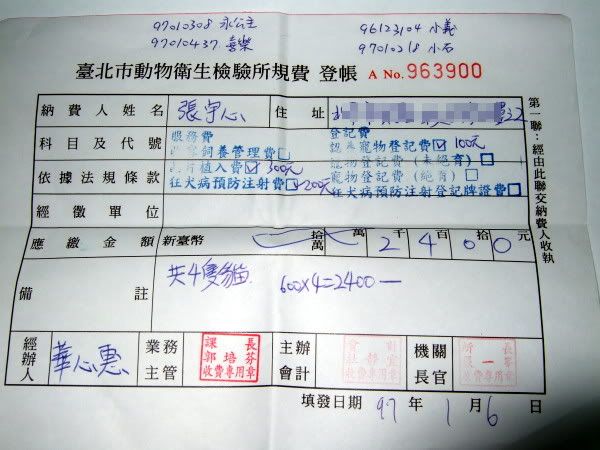 97010308 永公主 96123104 小義
97010437 喜樂 97010218 小石
臺北市動物衛生檢驗所規費 登帳 A No. 963900
第一聯：經由此聯交納費人收執
納費人姓名 張宇心 住址
科目及代號 服務費 登記費
飼養管理費□ 認養寵物登記費☑ 100元
依據法規條款 植入費☑ 300元 寵物登記費（未絕育）□
狂犬病預防注射費☑ 200元 寵物登記費（絕育）□
狂犬病預防注射登記牌證費□
經徵單位
應繳金額 新臺幣 拾萬 萬 2 千 4 百 0 拾 0 元
備註 共4隻貓 600×4=2400—
經辦人 華心惠 業務主管 課長 郭培芬 收費專用章 主辦會計 收費專用章 機關長官 收費專用章
填發日期 97 年 1 月 6 日